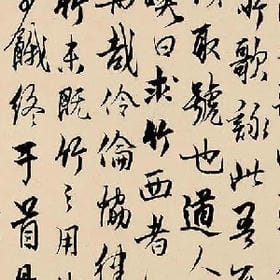 歌詠此吾
取號也道人
曰求竹西者
哉伶倫協律
竹未既竹之用
餓終于首